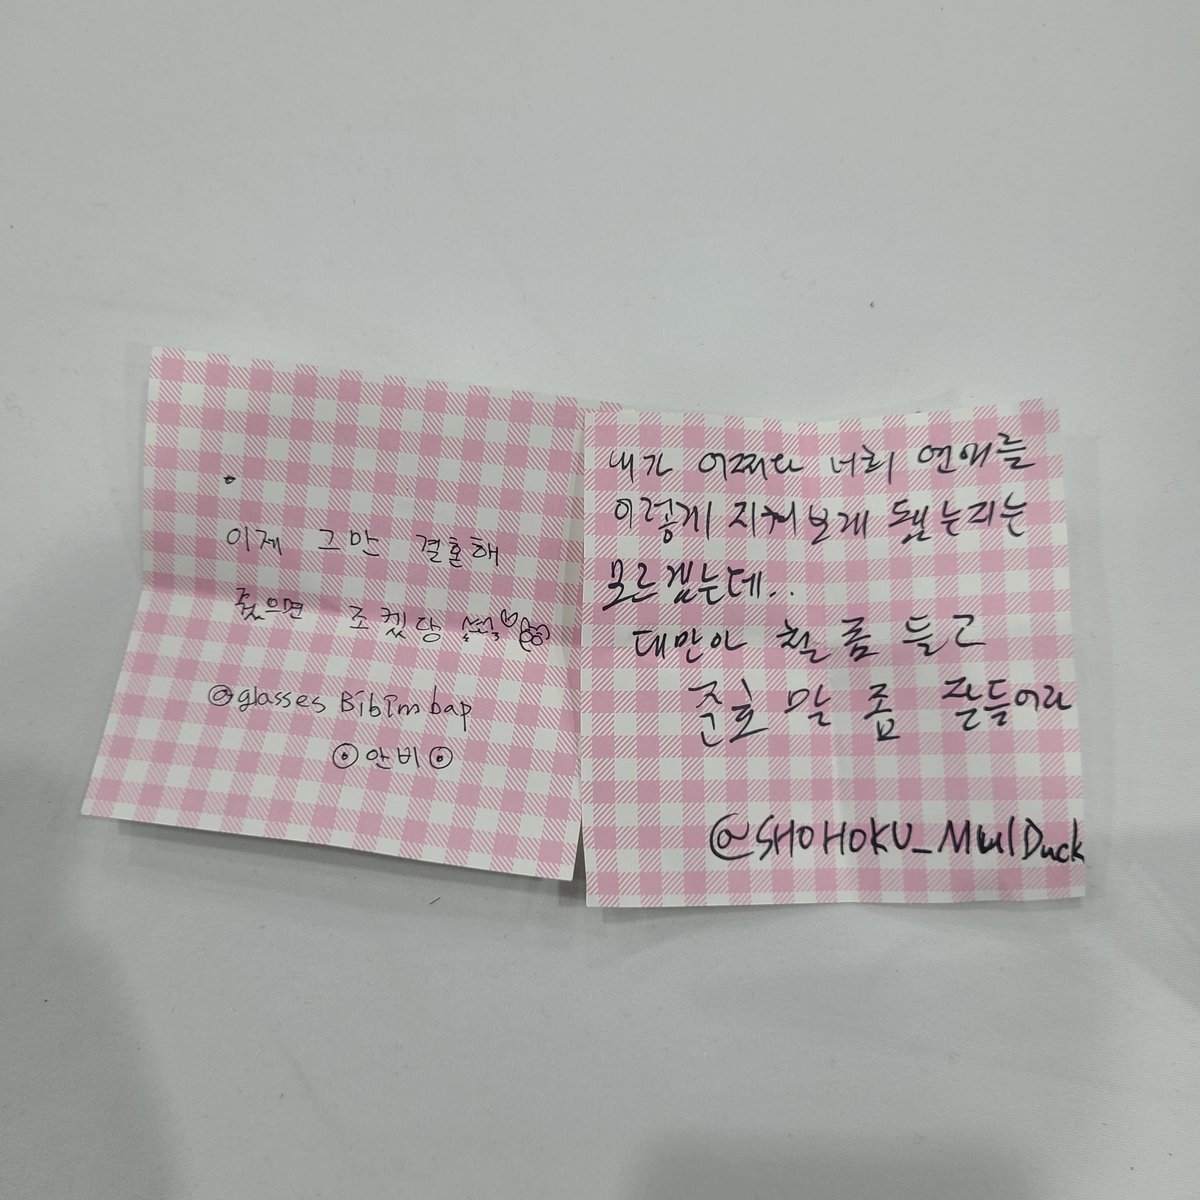 이제 그만 결혼해
줬으면 조켔당
@glasses Bibimbap
⊙안비⊙
내가 어쩌다 너희 연애를
이렇게 지켜보게 됐는지는
모르겠는데..
대만아 철 좀 들고
준호 말 좀 잘들어라
@SHOHOKU_MulDuck